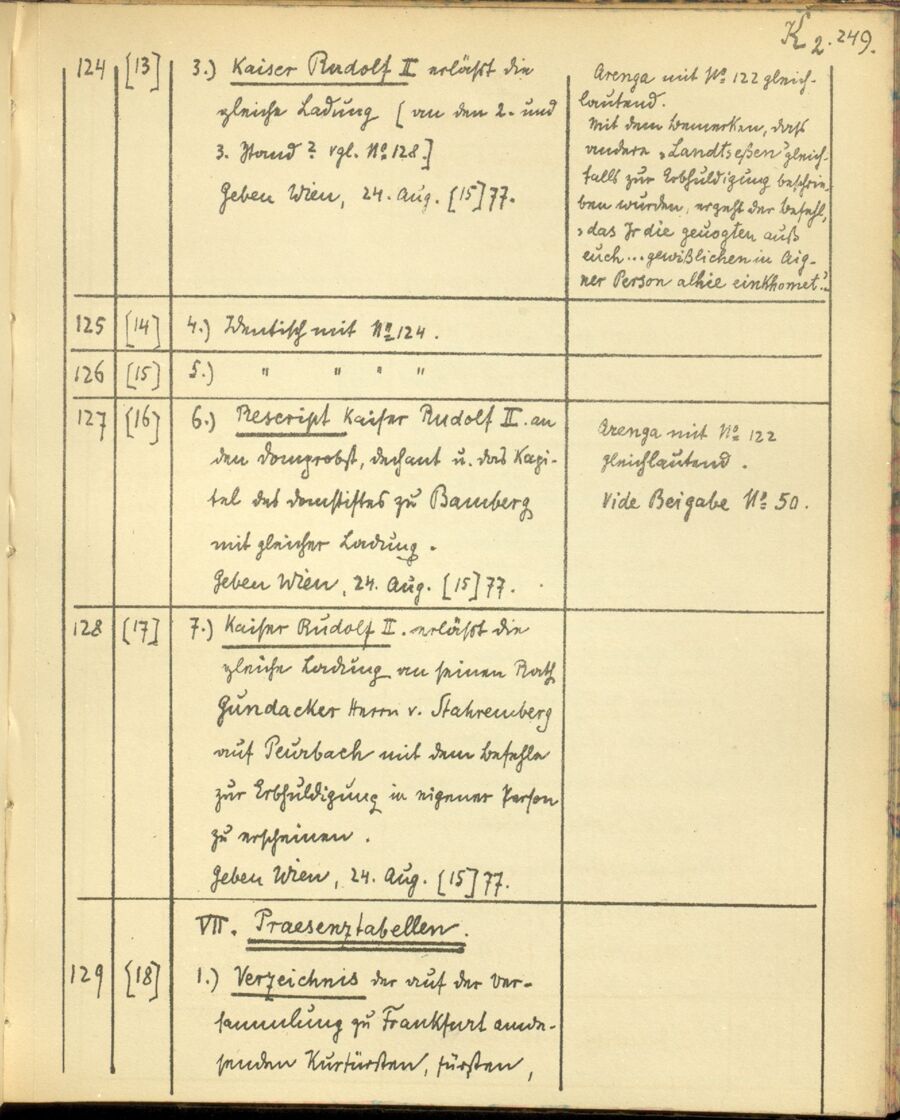 K 2. 249.
124 [13] 3.) Kaiser Rudolf II erläßt die
gleiche Ladung [an den 2. und
3. Stand? vgl. No 128.]
Geben Wien, 24. Aug. [15]77.
Arenga mit No 122 gleich-
lautend.
Mit dem Bemerken, daß
andere „Landtseßen" gleich-
falls zur Erbhuldigung beschrie-
ben wurden, ergeht der Befehl,
„das Ir die geuogten auß
euch... gewißlichen in Aig-
ner Person alhie einkhomet"..
125 [14] 4.) Identisch mit No 124.
126 [15] 5.) " " " "
127 [16] 6.) Rescript Kaiser Rudolf II. an
den Domprobst, Dechant u. das Kapi-
tel des Domstiftes zu Bamberg
mit gleicher Ladung.
Geben Wien, 24. Aug. [15]77.
Arenga mit No 122
gleichlautend.
Vide Beigabe No 50.
128 [17] 7.) Kaiser Rudolf II. erläßt die
gleiche Ladung an seinen Rath
Gundacker Herrn v. Stahremberg
auf Peurbach mit dem Befehle
zur Erbhuldigung in eigener Person
zu erscheinen.
Geben Wien, 24. Aug. [15]77.
VII. Praesenztabellen.
129 [18] 1.) Verzeichnis der auf der Ver-
sammlung zu Frankfurt anwe-
senden Kurfürsten, Fürsten,